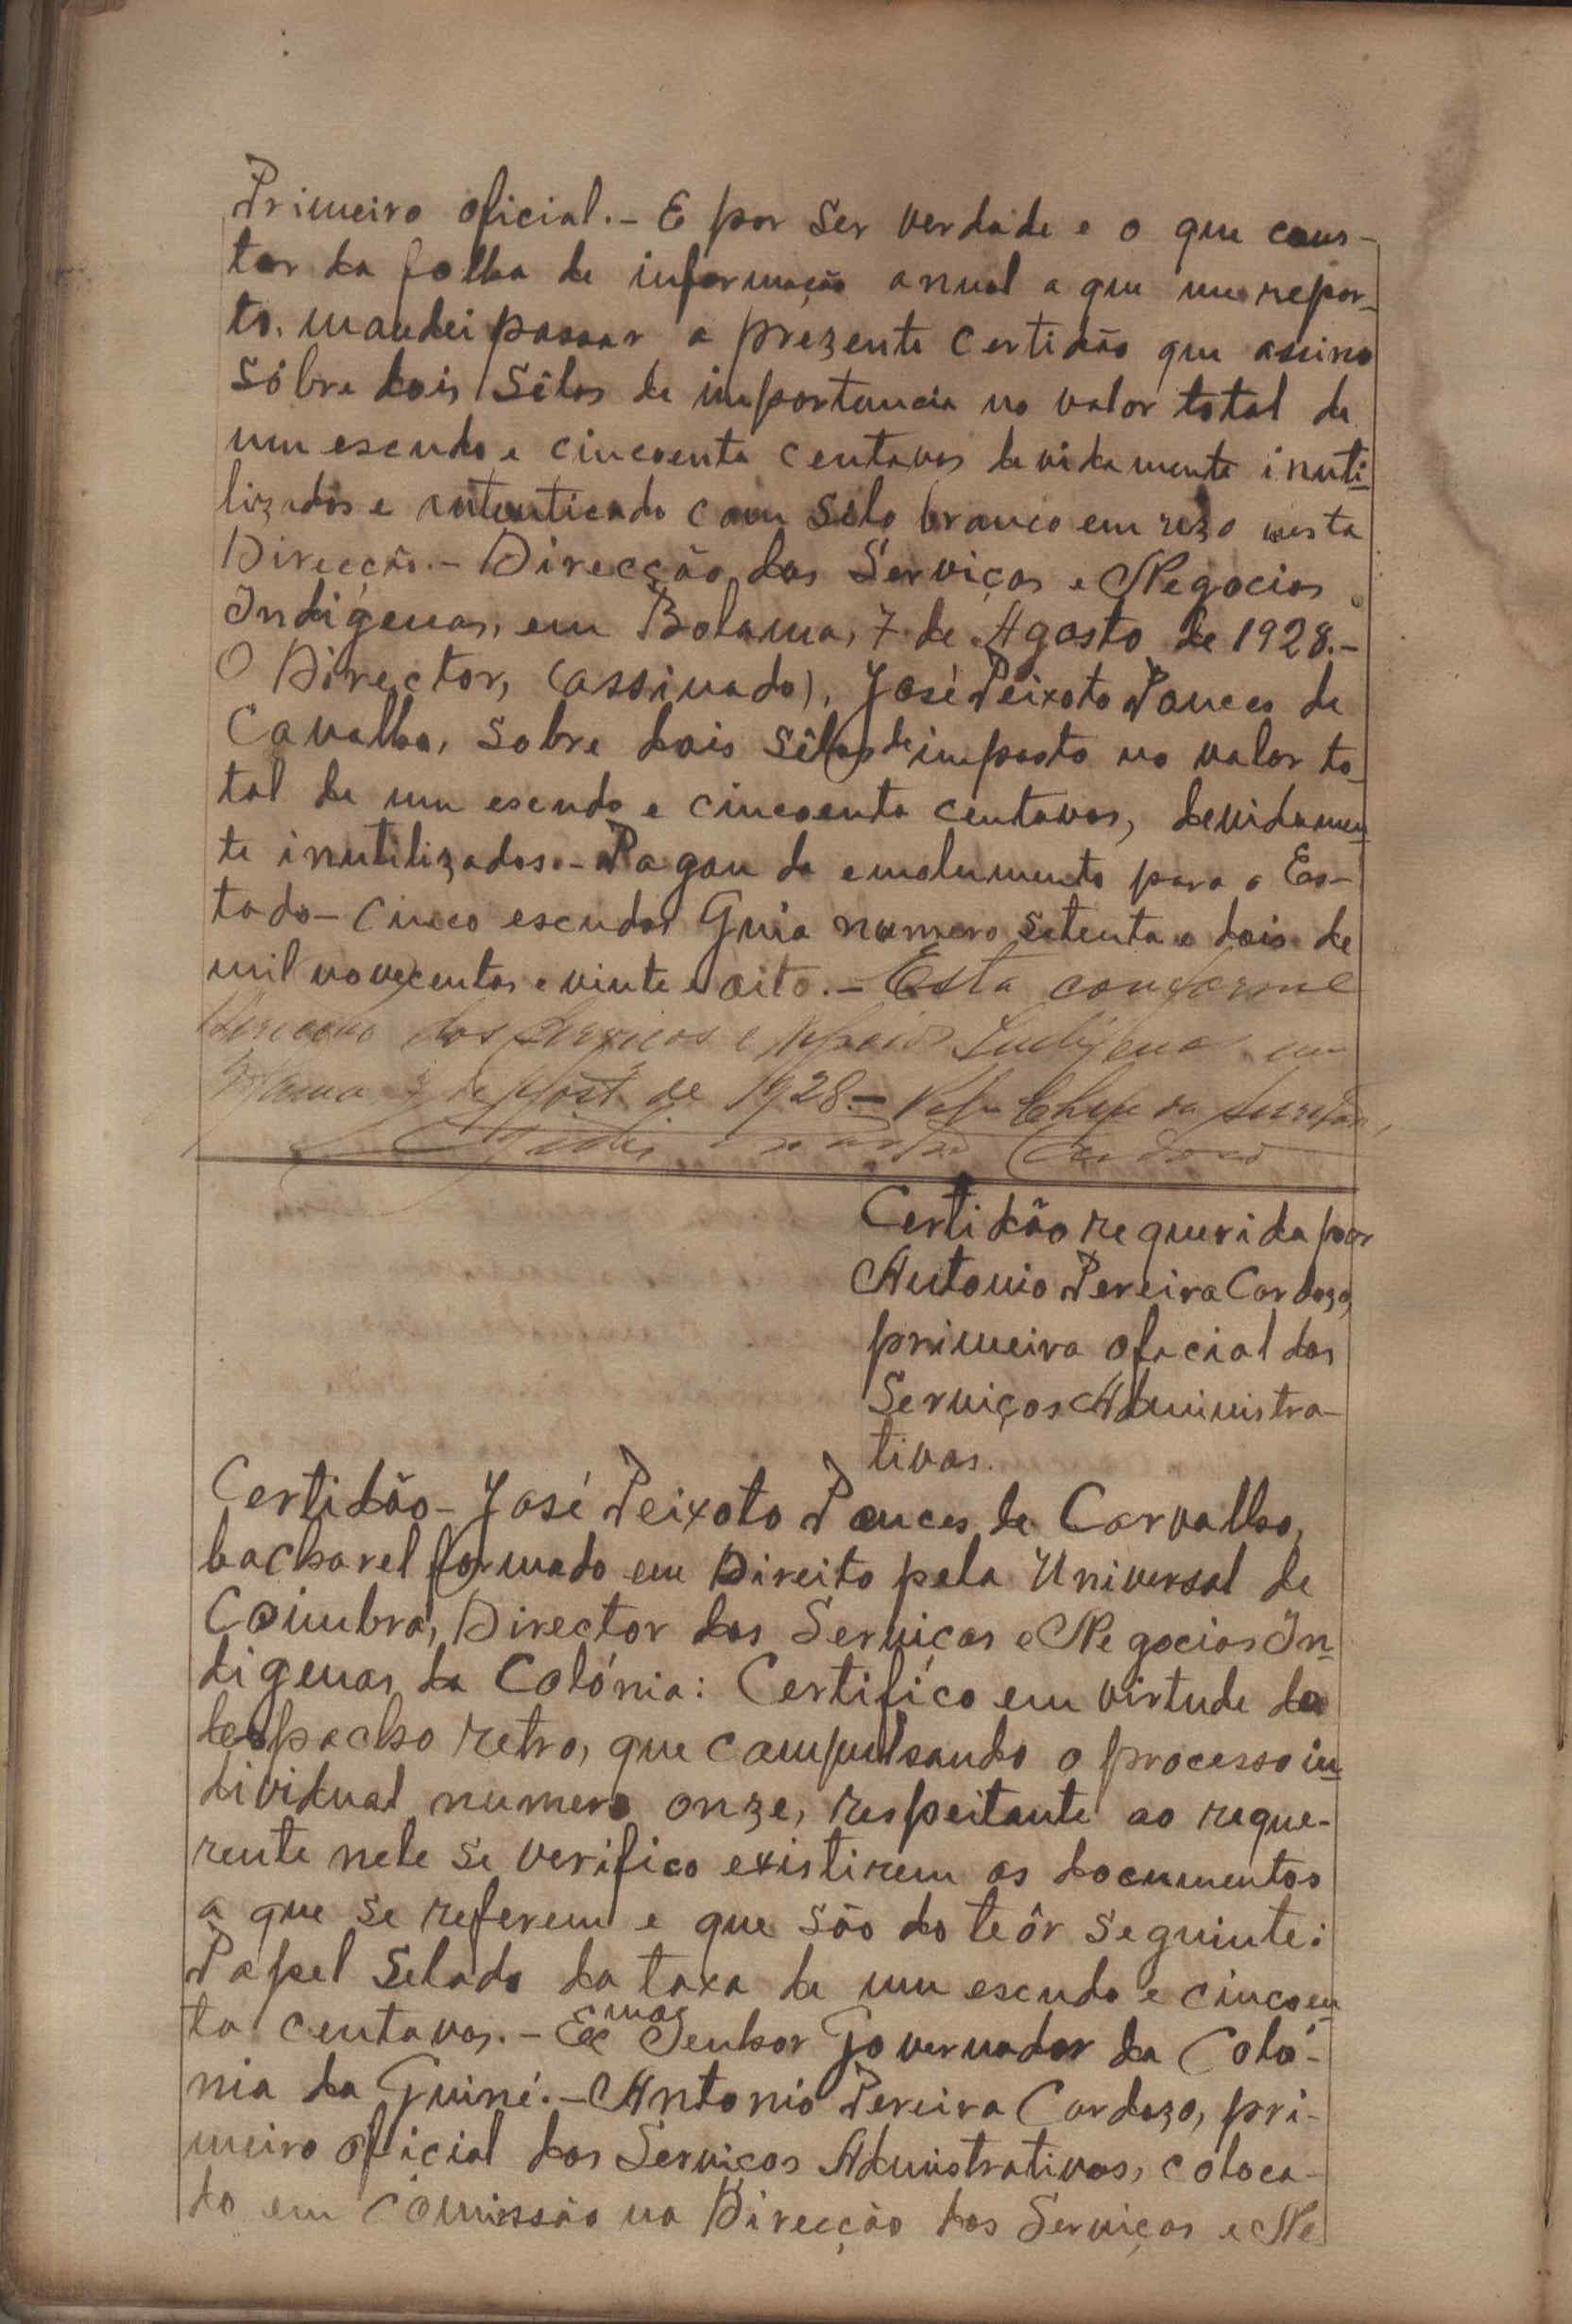 Primeiro oficial.- E por ser verdade e o que cons-
tar da folha de informação anual a que me repor-
to, mandei passar a prezente certidão que assino
sôbre dois sêlos de importancia no valor total de
um escudo e cincoenta centavos devidamente inuti-
lizados e autenticado com sêlo branco em uzo nesta
Direcção.- Direcção dos Serviços e Negocios
Indigenas, em Bolama, 7 de Agosto de 1928.-
O Director, (assinado), José Peixoto Ponces de
Cavalho, sobre dois sêlos de imposto no valor to-
tal de um escudo e cincoenta centavos, devidamen-
te inutilizados.- Pagou de emolumento para o Es-
tado- cinco escudos Guia numero setenta e dois de
mil novecentos e vinte e oito.- Esta conforme
Direcção dos Serviços e Indigenas em
Bolama 7 de de 1928.- Chefe da
Cardoso
Certidão requerida por
Antonio Pereira Cardozo,
primeiro oficial dos
Serviços Administra-
tivos.
Certidão- José Peixoto Ponces de Carvalho,
bacharel formado em Direito pela Universal de
Coimbra, Director dos Serviços e Negocios In-
digenas da Colónia: Certifico em virtude do
despacho retro, que compulsando o processo in-
dividual numero onze, respeitante ao reque-
rente nele se verifico existirem os documentos
a que se referem e que são do teôr seguinte:
Papel selado da taxa de um escudo e cincoen-
ta centavos.- Exmo Senhor Governador da Coló-
nia da Guiné.- Antonio Pereira Cardozo, pri-
meiro oficial dos Serviços Adminstrativos, coloca-
do em comissão na Direcção dos Serviços e Ne